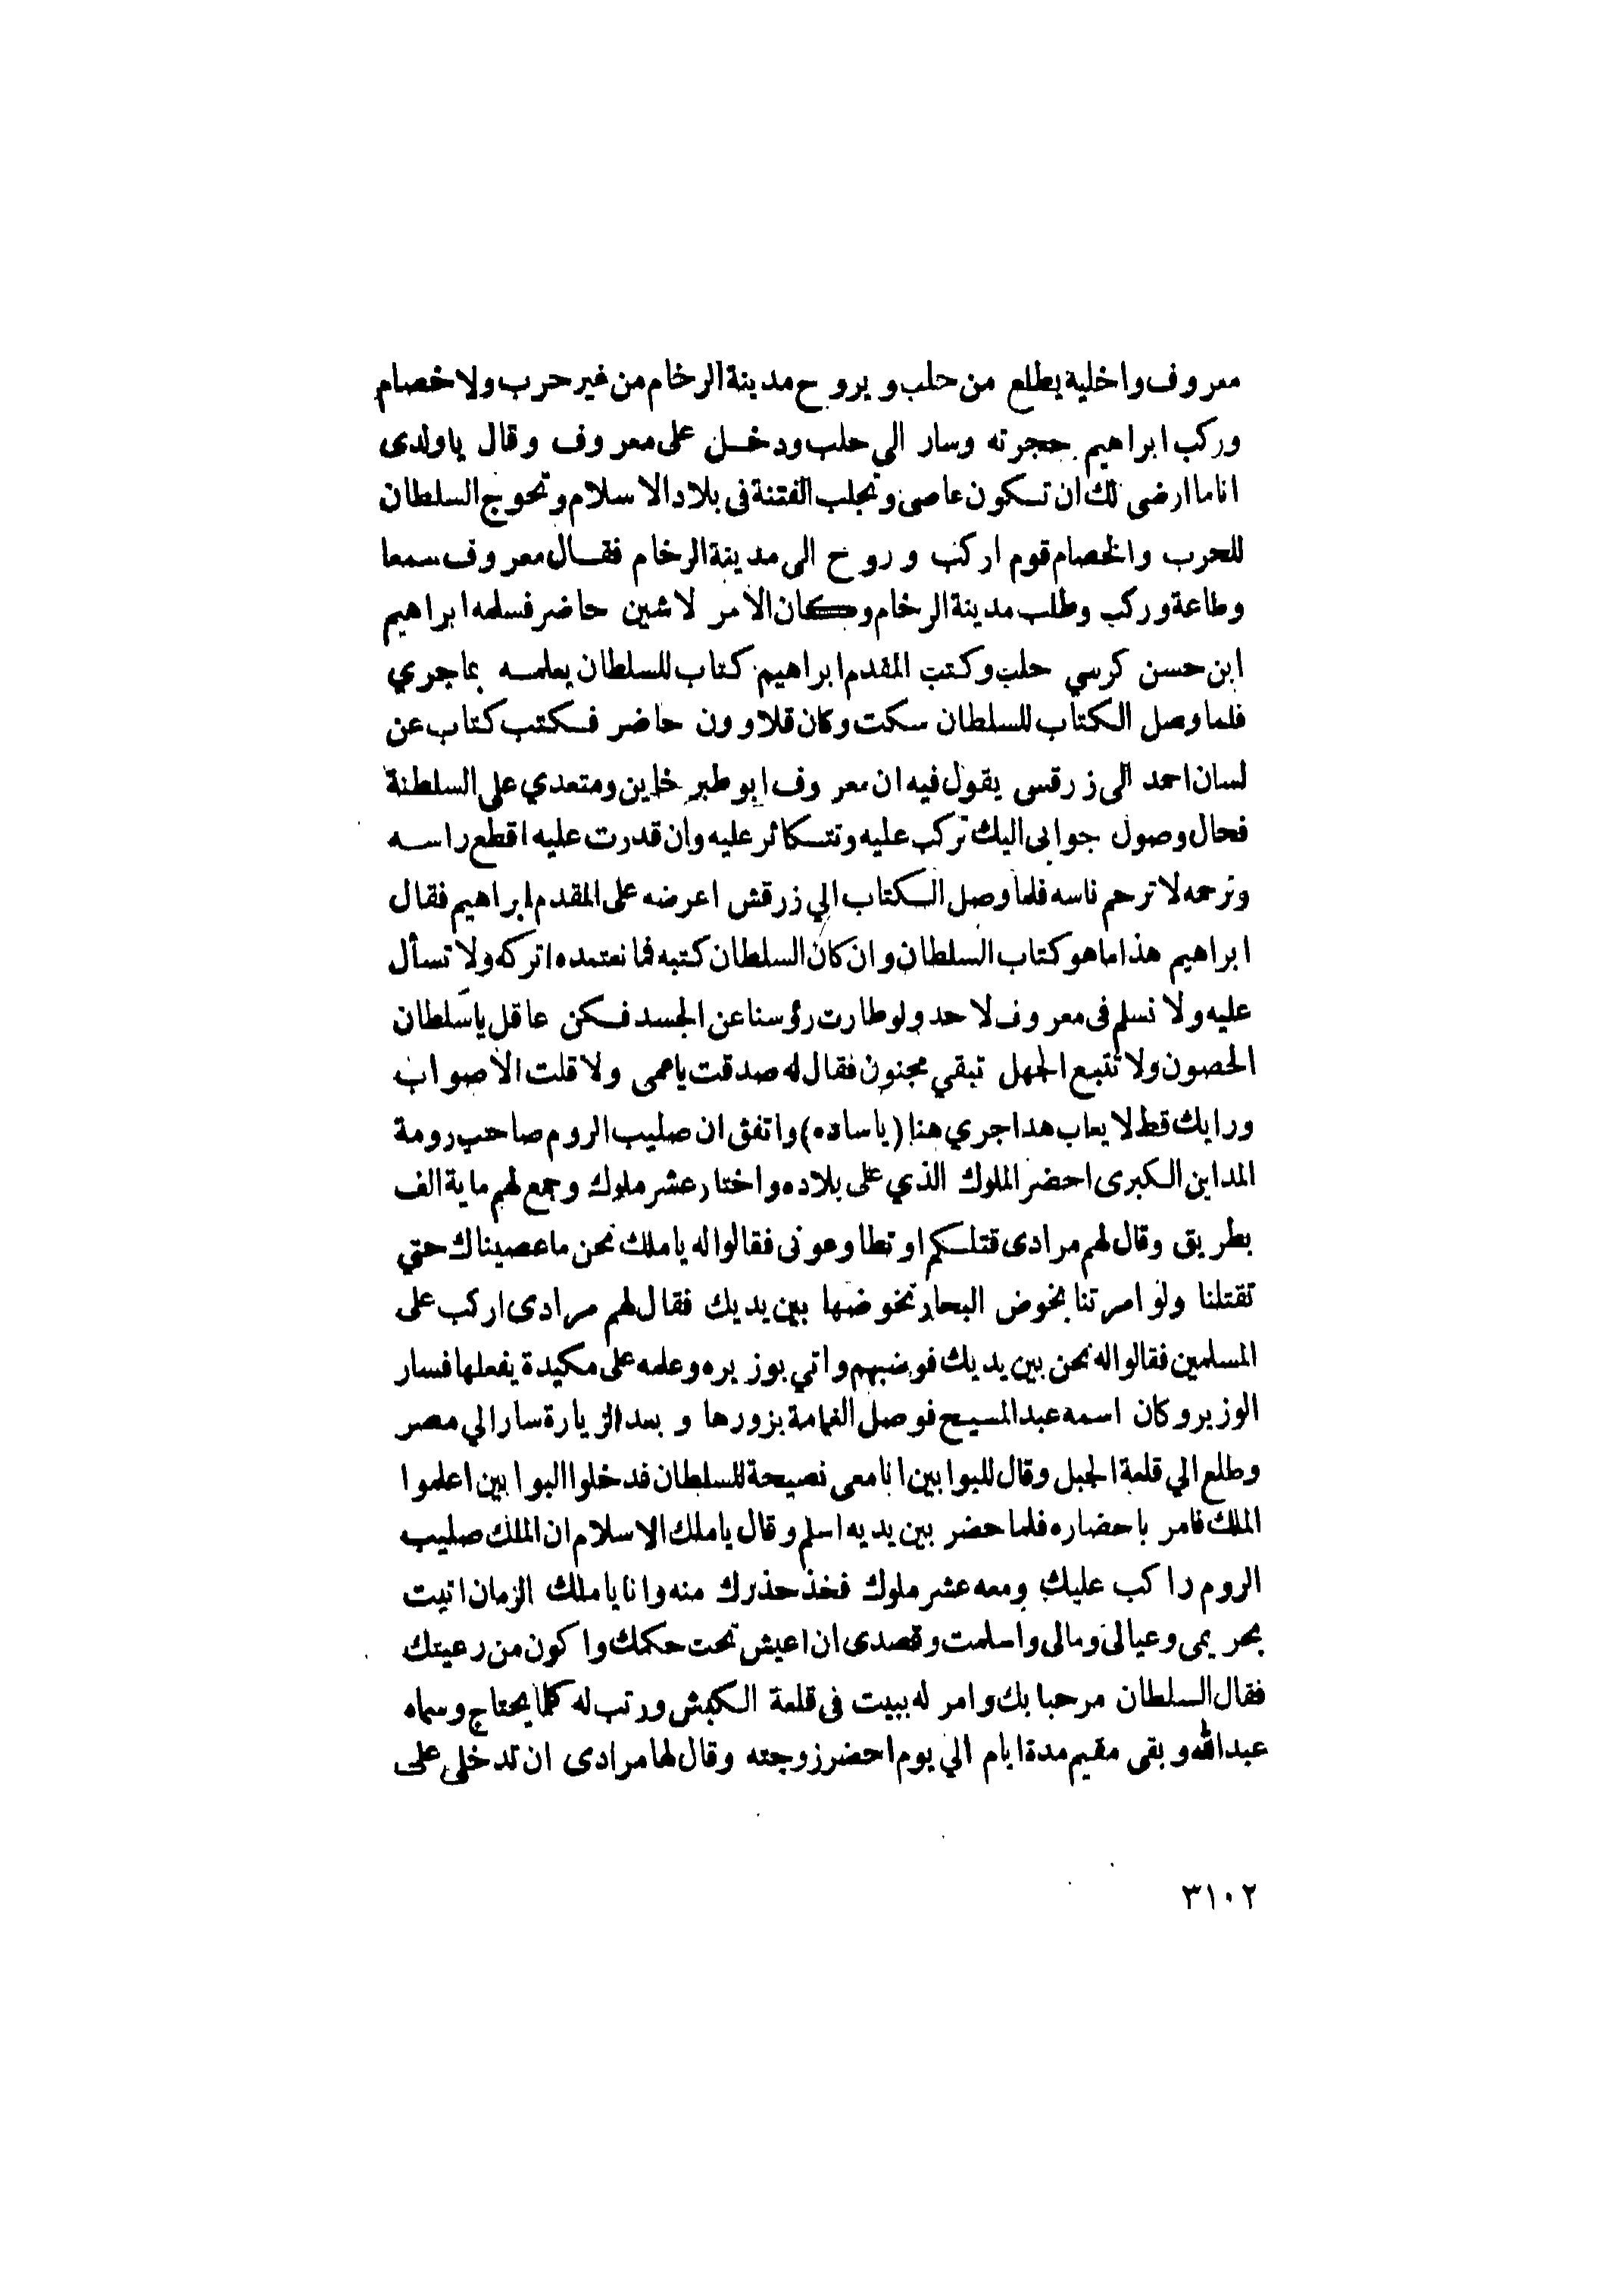 معروف واخليه يطلع من حلب ويروح مدينة الرخام من غير حرب ولا خصام
وركب ابراهيم حجرته وسار الي حلب ودخل على معروف وقال ياولدى
انا ما ارضى لك ان تكون عاصى وتجلب الفتنة فى بلاد الاسلام وتحوج السلطان
للحرب والخصام قوم اركب وروح الى مدينة الرخام فقال معروف سمعا
وطاعة وركب وطلب مدينة الرخام وكان الامر لاشين حاضر فسلمه ابراهيم
ابن حسن كرسي حلب وكتب المقدم ابراهيم كتاب للسلطان يعلمه بما جري
فلما وصل الكتاب للسلطان سكت وكان قلاوون حاضر فكتب كتاب عن
لسان احمد الى زرقس يقول فيه ان معروف ابو طبر خاين ومتعدي على السلطنة
فحال وصول جوابى اليك تركب عليه وتتكاثر عليه وان قدرت عليه اقطع راسه
وترحمه لا ترحم ناسه فلما وصل الكتاب الي زرقش اعرضه على المقدم ابراهيم فقال
ابراهيم هذا ما هو كتاب السلطان وان كان السلطان كتبه فما نعتمده اتركه ولا تسأل
عليه ولا نسلم فى معروف لاحد ولو طارت رؤسنا عن الجسد فكن عاقل ياسلطان
الحصون ولا تتبع الجهل تبقي مجنون فقال له صدقت ياعمى ولا قلت الا صواب
ورايك قط لا يعاب هدا جري هنا (ياساده) واتفق ان صليب الروم صاحب رومة
المداين الكبرى احضر الملوك الذي على بلاده واختار عشر ملوك وجمع لهم ماية الف
بطريق وقال لهم مرادى قتلكم او تطاوعونى فقالوا له ياملك نحن ما عصيناك حتي
تقتلنا ولو امرتنا بخوض البحار نخوضها بين يديك فقال لهم مرادى اركب على
المسلمين فقالوا له نحن بين يديك فوضبهم واتي بوزيره وعلمه على مكيدة يفعلها فسار
الوزير وكان اسمه عبد المسيح فوصل القمامة بزورها وبعد الزيارة سار الي مصر
وطلع الي قلعة الجبل وقال للبوابين انا معى نصيحة للسلطان فدخلوا البوابين اعلموا
الملك فامر باحضاره فلما حضر بين يديه اسلم وقال ياملك الاسلام ان الملك صليب
الروم راكب عليك ومعه عشر ملوك فخذ حذرك منه وانا ياملك الزمان اتيت
بحريمى وعيالى ومالى واسلمت وقصدى ان اعيش تحت حكمك واكون من رعيتك
فقال السلطان مرحبا بك وامر له ببيت فى قلعة الكبش ورتب له كلما يحتاج وسماه
عبد الله وبقى مقيم مدة ايام الي يوم احضر زوجته وقال لها مرادى ان تدخلى على
٣١٠٢